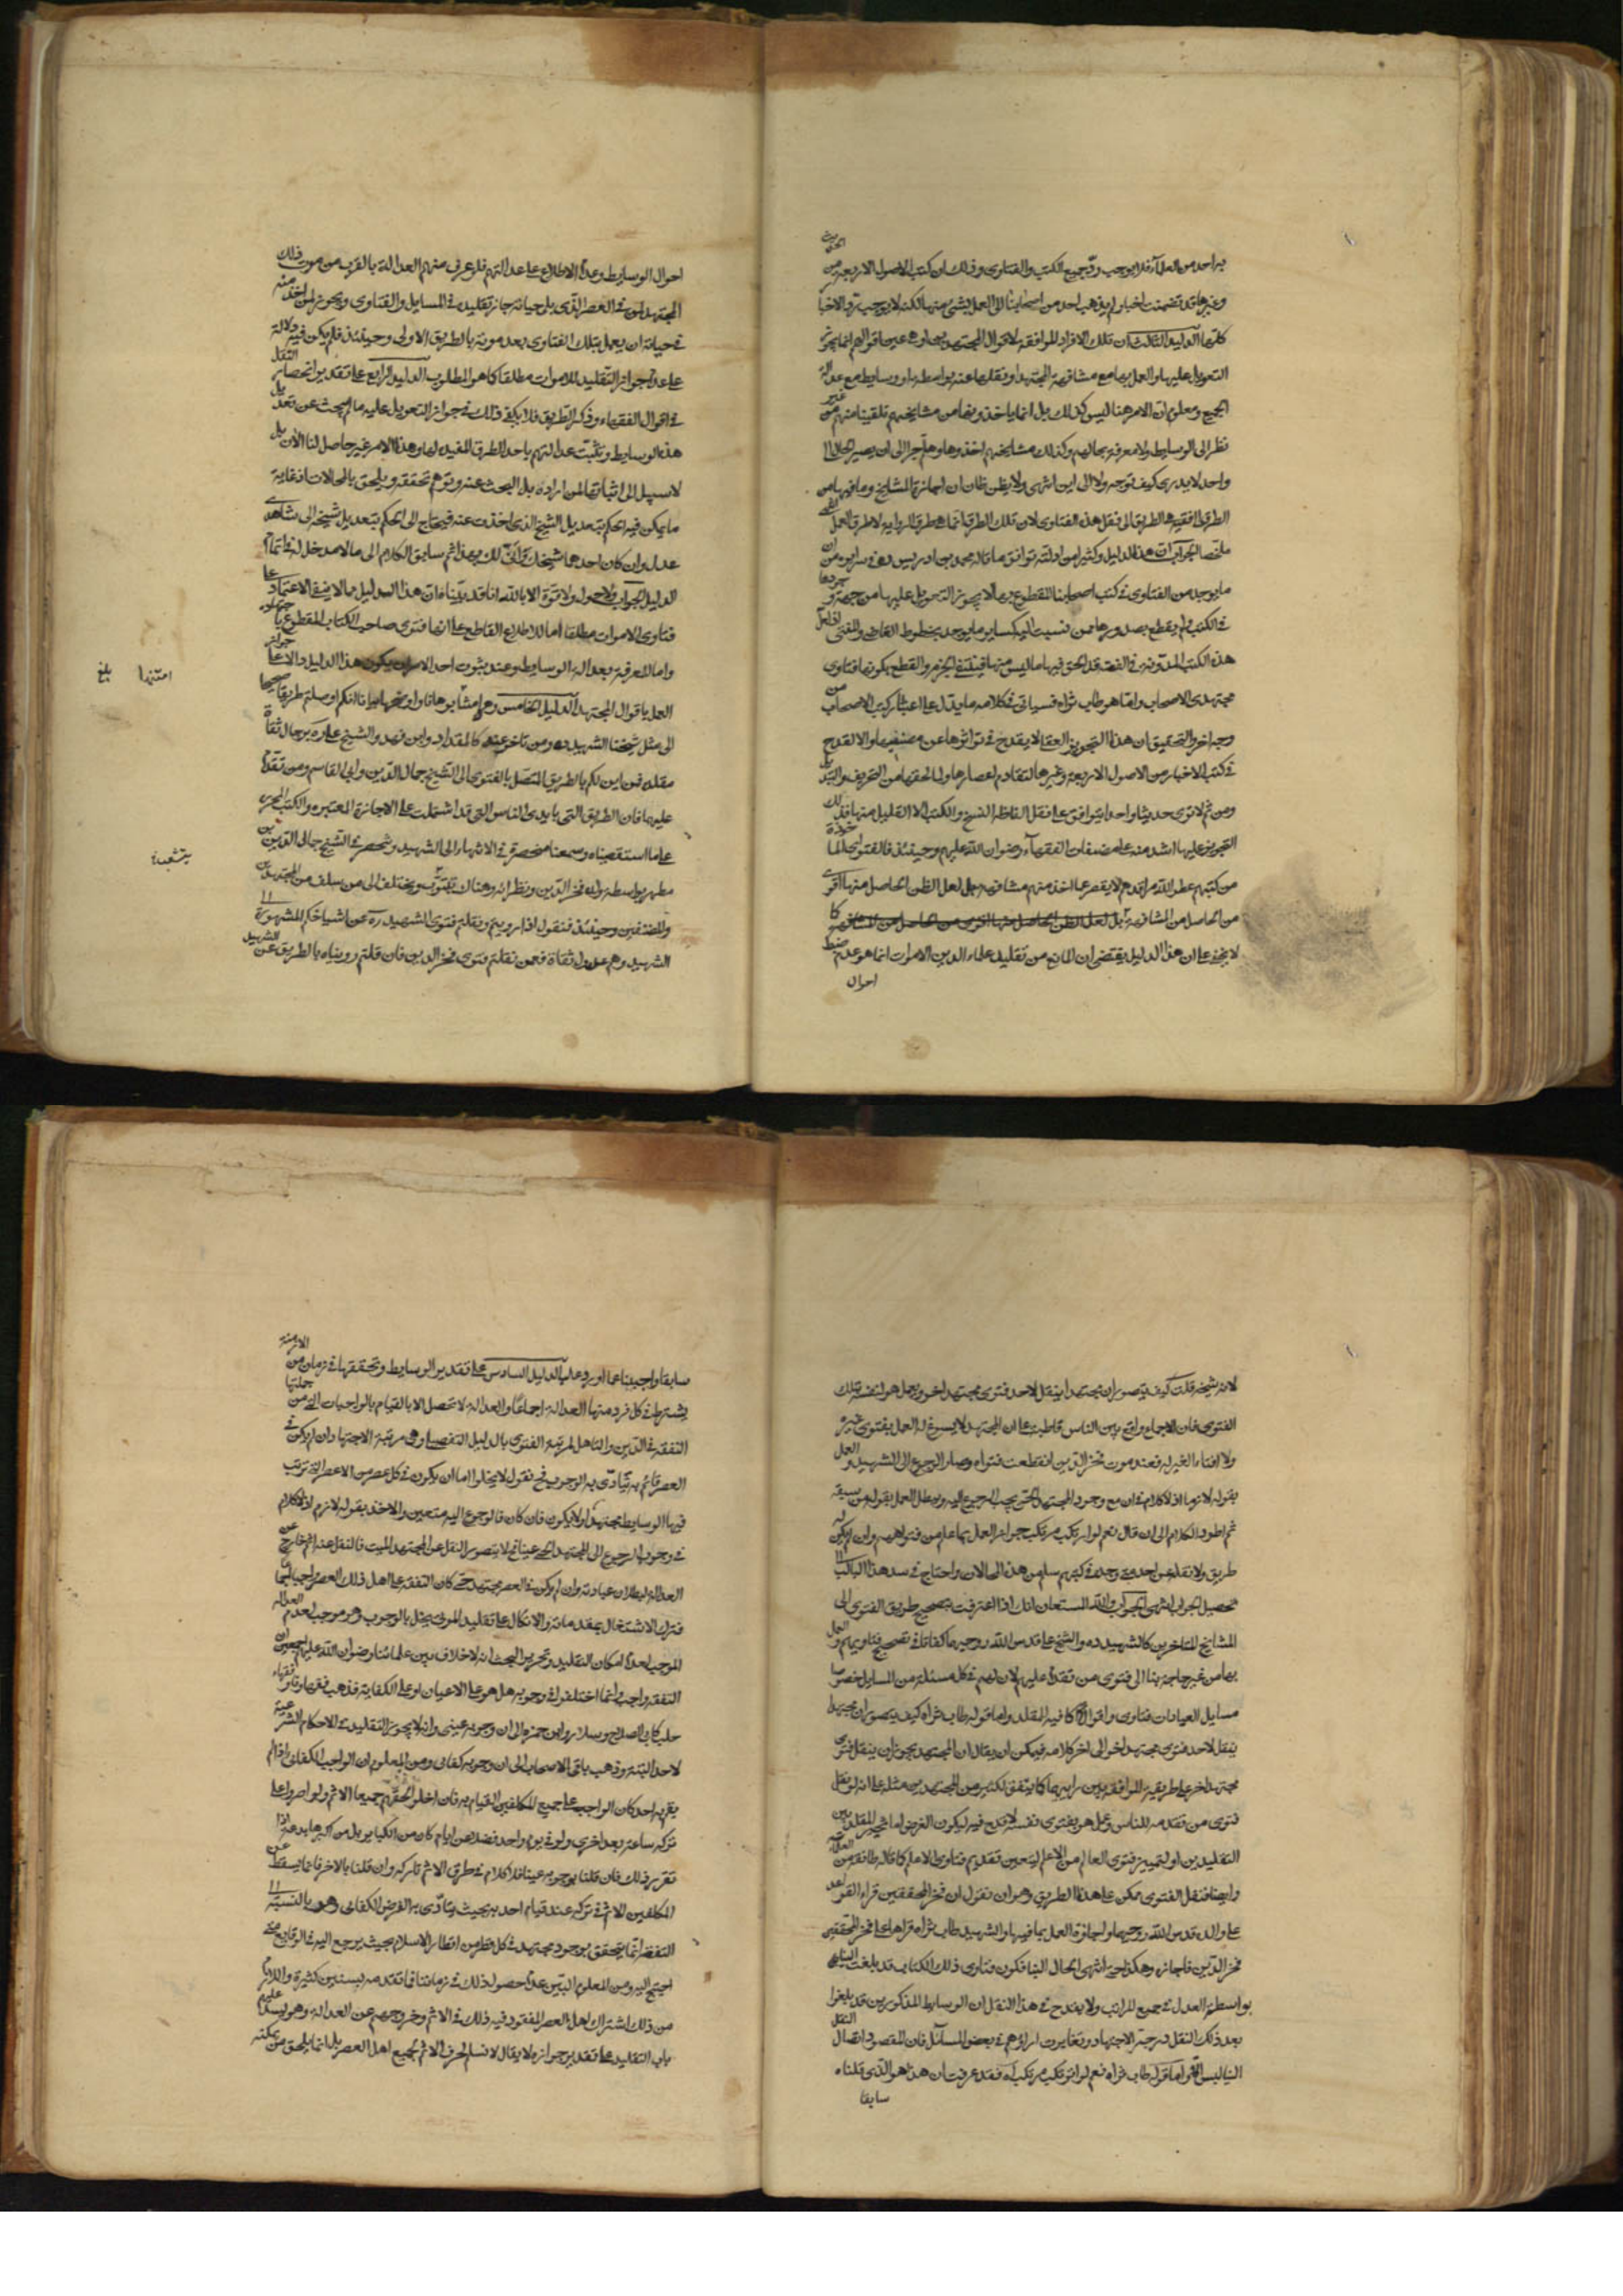 به احد من العلماء فلا يوجب ردّ جميع الكتب والفتاوى وذلك ان كتب الاصول الاربعة من الحديث
وغيرها قد تضمنت اخبار لم يذهب احد من اصحابنا الى العمل بشئ منها لكنه لا يوجب ردّ الاخبار
كلّها الدليل الثالث ان تلك الافراد الموافقة لاقوال المجتهدين او هى عين اقوالهم انما يجوز
التعويل عليها والعمل بها مع مشافهة المجتهد او نقلها عنه بواسطة او وسايط مع عدالة
الجميع ومعلوم ان الامر هنا ليس كذلك بل انما ياخذونها من مشايخهم تلقينا منهم من غير
نظر الى الوسايط ولا معرفة بحالهم وكذلك مشايخهم اخذوها وهلم جرا الى ان يصير الحال الى
واحد لا يدرى كيف توجه ولا الى اين انتهى ولا يظن ظان ان اجازة المشايخ وما فيها من
الطرق الى الفقيه هى الطريق الى نقل هذه الفتاوى لان تلك الطرق انما هى طرق الرواية لا طرق العمل انتهى
ملخصا الجواب ان هذا الدليل وكثيرا من ادلته توافق ما قاله محمد بن ادريس ره فى سرايره من ان
ما يوجد من الفتاوى فى كتب اصحابنا المقطوع بها لا يجوز التعويل عليها من جهة وجودها
فى الكتب ولم يقطع بصدورها ممن نسبت اليه كساير ما يوجد بخطوط القاضى والمفتى اقول
هذه الكتب المدونة فى الفقه قد الحق فيها ما ليس منها فينتفى الجزم والقطع بكونها فتاوى
مجتهدى الاصحاب واما هو طاب ثراه فسياتى فى كلامه ما يدل على اعتبار كتب الاصحاب من
وجه اخر والتحقيق ان هذا التجويز العقلى لا يقدح فى تواترها عن مصنفيها والا لقدح
فى كتب الاخبار من الاصول الاربعة وغيرها لتقادم اعصارها ولما لحقها من التحريف والتبديل
ومن ثم لا ترى حديثا واحدا يتوافق على نقل الفاظه النسخ والكتب الا القليل منها فذلك
التجويز عليها اشد منه على مصنفات الفقهاء رضوان الله عليهم وحينئذ فالفتوى الماخوذة
من كتبهم عطر الله مراقدهم لا يقصر عما اخذ منهم مشافهة بل لعل الظن الحاصل منها اقوى
من الحاصل من المشافهة بل لعل الظن الحاصل منها اقوى من الحاصل من المشافهة كما
لا يخفى على ان هذا الدليل يقتضى ان المانع من تقليد علماء الدين الاموات انما هو عدم ضبط
احوال
احوال الوسايط وعدم الاطلاع على عدالتهم فلو عرف منهم العدالة بالقرب من موت ذلك
المجتهد لمن فى العصر الذى يلى حياته جاز تقليده فى المسايل والفتاوى ويجوز لمن اخذ منه
فى حياته ان يعمل بتلك الفتاوى بعد موته بالطريق الاولى وحينئذ فلم يكن فيه دلالة
على عدم جواز التقليد للاموات مطلقا كما هو المطلوب الدليل الرابع على تقدير انحصار النقل
فى اقوال الفقهاء وذكر الطريق فلا يكفى ذلك فى جواز التعويل عليه ما لم يبحث عن تعديل
هذه الوسايط وتثبت عدالتهم باحد الطرق المفيدة لها وهذا الامر غير حاصل لنا الآن بل
لا سبيل الى اثباتها لمن اراده بل البحث عنه وتوهم تحققه ويلحق بالمحالات اذ غاية
ما يمكن فيه الحكم بتعديل الشيخ الذى اخذت عنه فيحتاج الى الحكم بتعديل شيخه الى شاهدى
عدل وان كان احدهما شيخك وانى لك بهذا ثم ساق الكلام الى ما لا مدخل له فى اتمام
الدليل الجواب ولا حول ولا قوة الا بالله انا قد بيّنا فان هذا الدليل مما لا ينفى الاعتماد على
فتاوى الاموات مطلقا اما للاطلاع القاطع على انها فتوى صاحب الكتاب المقطوع بانها له
واما للمعرفة بعدالة الوسايط وعند ثبوت احد الامرين يكون هذا الدليل دالا على جواز
العمل باقوال المجتهد الدليل الخامس وهو امتنها برهانا واوضحها بيانا انكم لو صلتم طريقا صحيحا
الى مثل شيخنا الشهيد ره ومن تاخر عنه كالمقداد وابن فهد والشيخ على ره برجال ثقاة
مقلدة فمن اين لكم بالطريق المتصل بالفتوى الى الشيخ جمال الدين وابى القاسم ومن تقدم
عليهما فان الطريق التى بايدى الناس التى قد اشتملت على الاجازة المعتبرة والكتب المحررة
على ما استقصيناه وسمعنا منحصرة فى الانتهاء الى الشهيد وتنحصر فى الشيخ جمال الدين بن
مطهر بواسطة ولده فخر الدين ونظرائه وهناك تتشعب ويختلف الى من سلف من المجتهدين
والمصنفين وحينئذ فنقول اذا رويتم ونقلتم فتوى الشهيد ره عن اشياخكم المشهورة الى
الشهيد وهم عدول ثقاة فعمن نقلتم فتوى فخر الدين فان قلتم رويناه بالطريق عن الشهيد
امتنها بلغ
يتشعب
لانه شيخه قلت كيف يتصور ان مجتهدا ينقل لاحد فتوى مجتهد اخر ويعمل هو لنفسه بتلك
الفتوى فان الاجماع واقع بين الناس قاطبة على ان المجتهد لا يسوغ له العمل بفتوى غيره
ولا افتاء الغير به فعند موت فخر الدين انقطعت فتواه وصار الرجوع الى الشهيد والعمل
بقوله لازما اذ لا كلام فى ان مع وجود المجتهد الحى يجب الرجوع اليه ويبطل العمل بقول من سبقه
ثم اطرد الكلام الى ان قال نعم لو ارتكب مرتكب جواز العمل بما علم من فتواهم وان لم يكن له
طريق ولا نقله عن احد متى وجده فى كتبهم سلم من هذا المحالات واحتاج فى سد هذا الباب الى
تحصيل الجواب انتهى الجواب والله المستعان انك اذا اعترفت بتصحيح طريق الفتوى الى
المشايخ المتاخرين كالشهيد ره والشيخ على قدس الله روحيهما كفانا فى تصحيح فتاويهم والعمل
بها من غير حاجة بنا الى فتوى من تقدم عليهم لان لهم فى كل مسئلة من المسايل خصوصا
مسايل العبادات فتاوى واقوالا كافية للمقلد واما قوله طاب ثراه كيف يتصور ان مجتهدا
ينقل لاحد فتوى مجتهد اخر الى اخر كلامه فيمكن ان يقال ان المجتهد يجوز ان ينقل فتوى
مجتهد اخر على طريقة الموافقة بين رايهما كما يتفق لكثير من المجتهدين مثله على انه لو نقل
فتوى من تقدمه للناس وعمل هو بفتوى نفسه لا قدح فيه ليكون الغرض اما تخيير المقلد بين
التقليدين او لتمييز فتوى العالم من الاعلم ليتعين تقديم فتاوى الاعلم كما قاله طائفة من العلماء
وايضا فنقل الفتوى ممكن على هذا الطريق وهو ان نقول ان فخر المحققين قراء القواعد
على والده قدس الله روحيهما واجازه العمل بما فيها والشهيد طاب ثراه قراها على فخر المحققين
فخر الدين فاجازه وهكذا حتى انتهى الحال الينا فكون فتاوى ذلك الكتاب قد بلغت الينا
بواسطة العدل فى جميع المراتب ولا يقدح فى هذا النقل ان الوسايط المذكورين قد بلغوا
بعد ذلك النقل درجة الاجتهاد وتغايرت اراؤهم فى بعض المسائل فان المقصود اتصال النقل
الينا ليس الا واما قوله طاب ثراه نعم لو ارتكب مرتكب آه فقد عرفت ان هذا هو الذى قلناه
سابقا
سابقا واجبنا عما اورد عليه الدليل السادس على تقدير الوسايط وتحققها فى زمان من الازمنة
يشترط فى كل فرد منها العدالة اجماعا والعدالة لا تحصل الا بالقيام بالواجبات التى من جملتها
التفقه فى الدين والتاهل لمرتبة الفتوى بالدليل التفصيلى وهى مرتبة الاجتهاد ان لم يكن فى
العصر قائم به يتادّى به الوجوب فح نقول لا يخلوا اما ان يكون فى كل عصر من الاعصر التى ترتب
فيها الوسايط مجتهد او لا يكون فان كان فالرجوع اليه متعين والاخذ بقوله لازم اذ لا كلام
فى وجوب الرجوع الى المجتهد الحى عينا فح لا يتصور النقل عن المجتهد الميت فالناقل عنه اثم خارج عن
العدالة لبطلان عبادته وان لم يكن فى العصر مجتهد حى كان التفقه على اهل ذلك العصر واجبا عينا
فترك الاشتغال بمقدماته والاتكال على تقليد الموتى يخل بالوجوب وهو موجب لعدم العدالة
الموجب لعدم امكان التقليد وتحرير البحث انه لا خلاف بين علمائنا رضوان الله عليهم اجمعين ان
التفقه واجب وانما اختلفوا فى وجوبه هل هو على الاعيان او على الكفاية فذهب فقهاؤنا فقهاء
حلب كابى الصلاح وسلار وابن حمزه الى ان وجوبه عينى وانه لا يجوز التقليد فى الاحكام الشرعية
لاحد البتة وذهب باقى الاصحاب الى ان وجوبه كفائى ومن المعلوم ان الواجب الكفائى اذا لم
يقم به احد كان الواجب على جميع المكلفين القيام به فان اخلوا لحقهم جميعا الاثم ولو اصروا على
تركه ساعة بعد اخرى ولو فى يوم واحد فضلا عن ايام كان من الكبائر بل من اكبرها بدعة اذا
تقرر ذلك فان قلنا بوجوبه عينا فلا كلام فى طرق الاثم تاركه وان قلنا بالاخر فانما يسقط عن
المكلفين الاثم فى تركه عند قيام احد به بحيث يتادّى به الفرض الكفائى وهو بالنسبة الى
التفقه انما يتحقق بوجود مجتهد فى كل قطر من اقطار الاسلام بحيث يرجع اليه فى الوقايع متى
احتيج اليه ومن المعلوم البيّن عدم حصول ذلك فى زماننا فما تقدمه بسنين كثيرة واللازم
من ذلك اشتراك اهل العصر المفقود فيه ذلك فى الاثم وخروجهم عن العدالة وهو يسد عليهم
باب التقليد على تقدير جوازه لا يقال لا نسلم لحوق الاثم لجميع اهل العصر بل انما يلحق من يمكنه